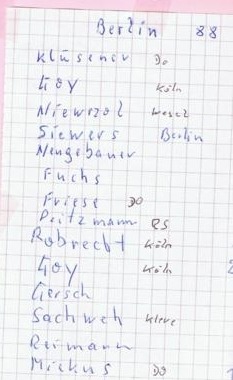 Berlin 88
Klüsener Do
Goy Köln
Niewerzol Wesel
Siewers Berlin
Neugebauer
Fuchs
Friese DO
Peitzmann RS
Robrecht Köln
Goy Köln 2
Gersch
Sachweh Kleve
Reimann
Mickus DO 1